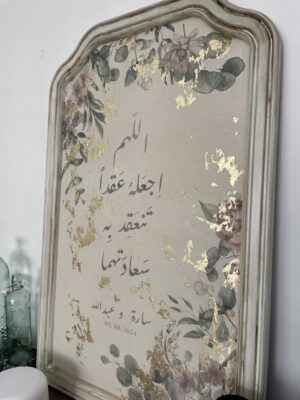 اللهم
اِجعَلهُ عَقداً
تَنعَقِد بِهِ
سَعادَتهما
سارة و عبدالله
02.08.2024